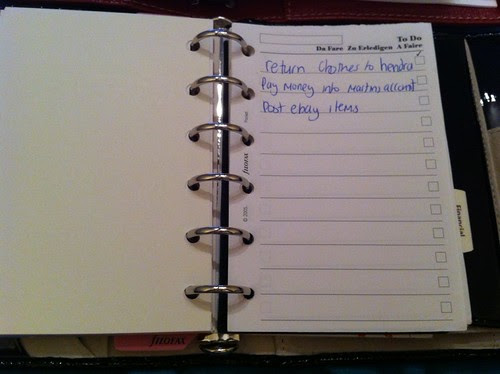 To Do
Da Fare Zu Erledigen A Faire
return Clothes to hendra
Pay money into Martins account
Post ebay items
filofax
© 2005
Financial
filofax